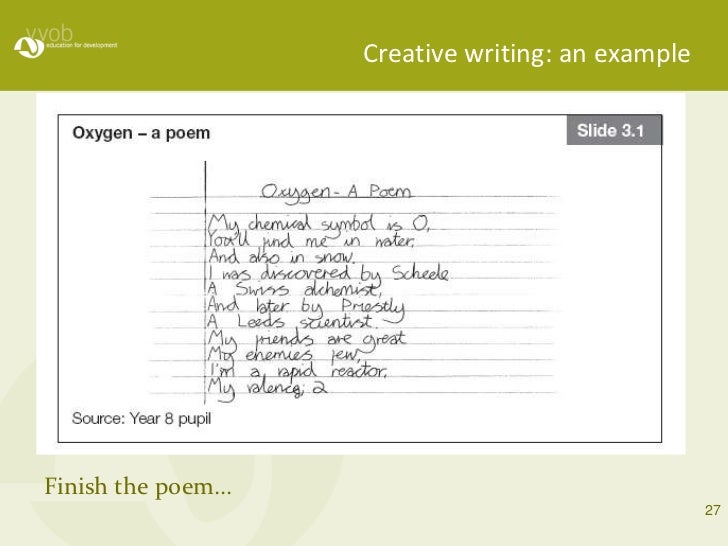 vvob
education for development
Creative writing: an example
Oxygen – a poem
Slide 3.1
Oxygen - A Poem
My chemical symbol is O,
You'll find me in water,
And also in snow.
I was discovered by Scheele
A Swiss alchemist,
And later by Priestly
A Leeds scientist.
My friends are great
My enemies few,
I'm a rapid reactor,
My valency, 2
Source: Year 8 pupil
Finish the poem...
27